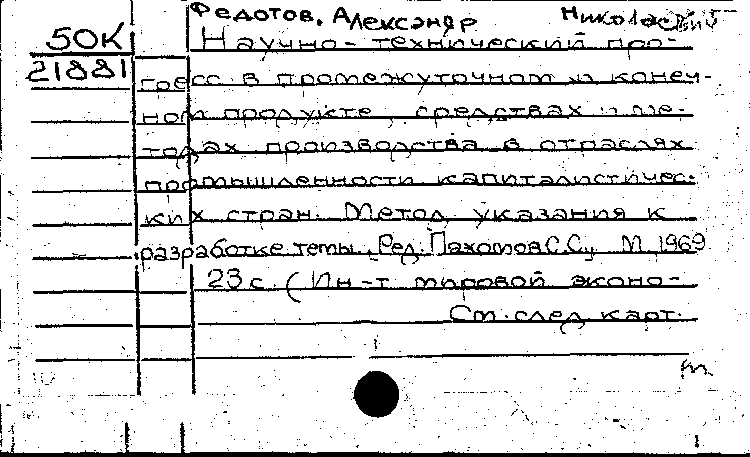 Федотов, Александр Николаевич
50К Научно-технический про-
21881 гресс в промежуточном и конеч-
ном продукте, средствах и ме-
тодах производства в отраслях
промышленности капиталистичес-
ких стран. Метод. указания к
разработке темы. Ред. Пахомов С.С. М. 1969
23 с. (Ин-т мировой эконо-
См. след. карт.